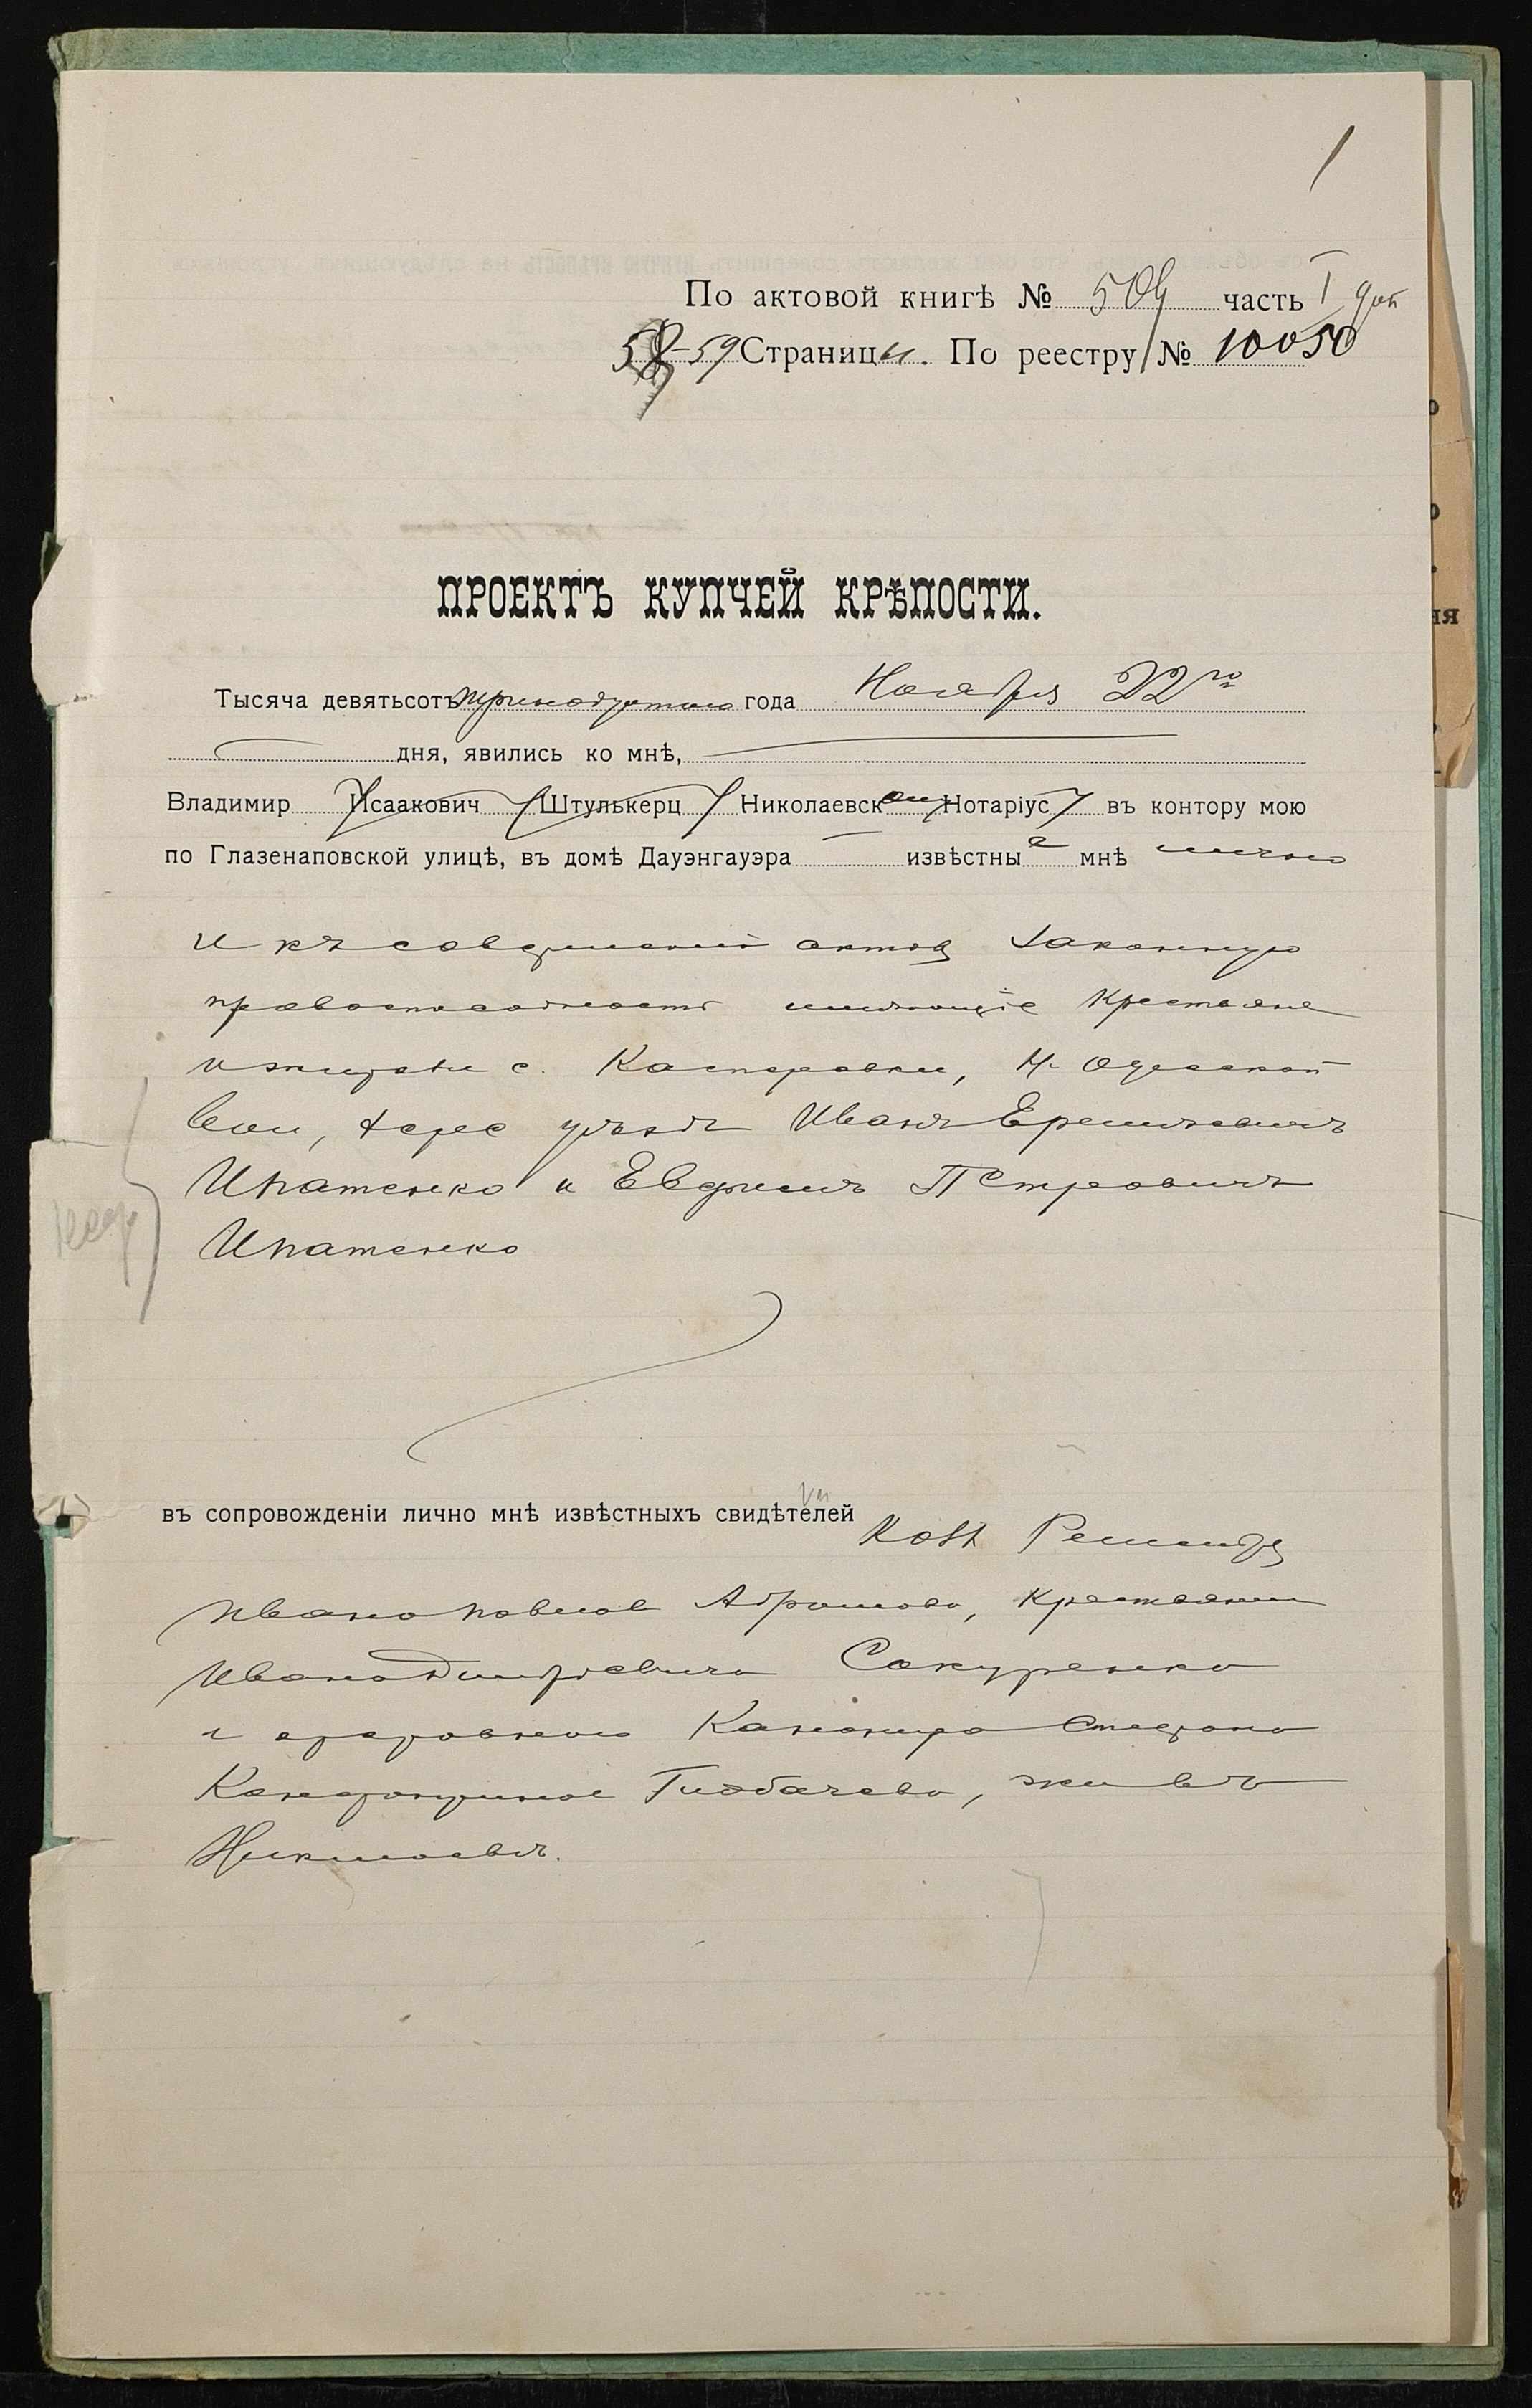 1
По актовой книгѣ № 504 часть I
58-59 Страницы. По реестру № 10050
ПРОЕКТЪ КУПЧЕЙ КРѢПОСТИ.
Тысяча девятьсотъ тринадцатаго года Ноября 22го
дня, явились ко мнѣ,
Владимир Исаакович Штулькерц Николаевск Нотаріус въ контору мою
по Глазенаповской улицѣ, въ домѣ Дауэнгауэра извѣстные мнѣ лично
и къ совершенію актовъ законную
правоспособность имѣющіе крестьяне
с. Касперовки, Н. Одесской
вол, Херс уѣзда Иванъ Ефимовичъ
Ипатенко и Евфимъ Петровичъ
Ипатенко
въ сопровожденіи лично мнѣ извѣстныхъ свидѣтелей
Ивана Абрамова, крестьянина
Ивана Дмитріевича Сакуренко
и Канонира Стефана
жив въ
Николаевѣ.